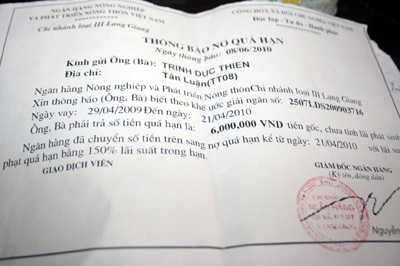 NGÂN HÀNG NÔNG NGHIỆP
VÀ PHÁT TRIỂN NÔNG THÔN VIỆT NAM
Chi nhánh loại III Lạng Giang
CỘNG HOÀ XÃ HỘI CHỦ NGHĨA VIỆT
Độc lập - Tự do - Hạnh phúc
THÔNG BÁO NỢ QUÁ HẠN
Ngày thông báo: 08/06/2010
Kính gửi Ông (Bà): TRINH DUC THIEN
Địa chỉ: Tân Luận(TT08)
Ngân hàng Nông nghiệp và Phát triển Nông thôn Chi nhánh loại III Lang Giang
Xin thông báo (Ông, Bà) biết theo khế ước giải ngân số: 2507LDS200903716
Ngày vay: 29/04/2009 Đến ngày: 21/04/2010
Ông, Bà phải trả số tiền quá hạn là: 6,000,000 VND tiền gốc, chưa tính lãi phát sinh
Ngân hàng đã chuyển số tiền trên sang nợ quá hạn kể từ ngày: 21/04/2010 với lãi su
phạt quá hạn bằng 150% lãi suất trong hạn.
GIAO DỊCH VIÊN
GIÁM ĐỐC NGÂN HÀNG
(Ký tên, đóng dấu)
Nguyễn